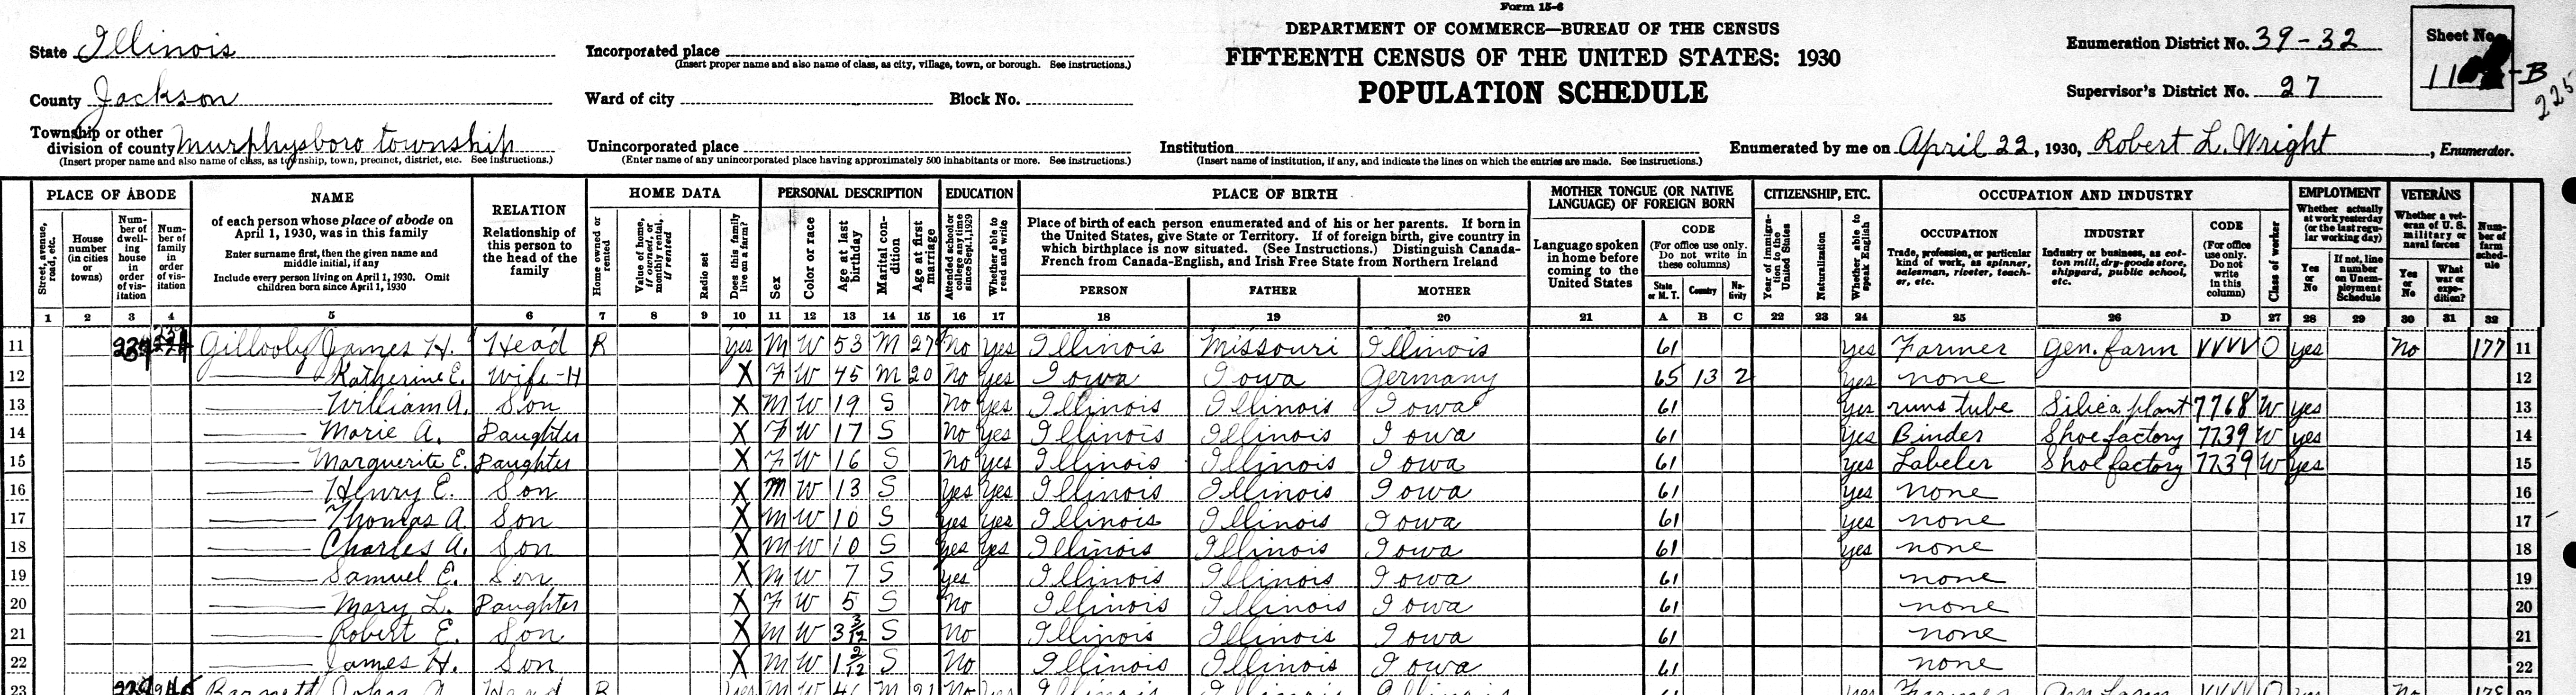 Form 15-6
DEPARTMENT OF COMMERCE—BUREAU OF THE CENSUS
FIFTEENTH CENSUS OF THE UNITED STATES: 1930
POPULATION SCHEDULE
State Illinois
County Jackson
Township or other division of county Murphysboro township
(Insert proper name and also name of class, as township, town, precinct, district, etc. See instructions.)
Incorporated place
(Insert proper name and also name of class, as city, village, town, or borough. See instructions.)
Ward of city Block No.
Unincorporated place
(Enter name of any unincorporated place having approximately 500 inhabitants or more. See instructions.)
Institution
(Insert name of institution, if any, and indicate the lines on which the entries are made. See instructions.)
Enumeration District No. 39-32
Supervisor's District No. 27
Sheet No.
11 -B
225
Enumerated by me on April 22, 1930, Robert L. Wright, Enumerator.
PLACE OF ABODE
Street, avenue, road, etc.
House number (in cities or towns)
Number of dwelling house in order of visitation
Number of family in order of visitation
NAME
of each person whose place of abode on April 1, 1930, was in this family
Enter surname first, then the given name and middle initial, if any
Include every person living on April 1, 1930. Omit children born since April 1, 1930
RELATION
Relationship of this person to the head of the family
HOME DATA
Home owned or rented
Value of home, if owned, or monthly rental, if rented
Radio set
Does this family live on a farm?
PERSONAL DESCRIPTION
Sex
Color or race
Age at last birthday
Marital condition
Age at first marriage
EDUCATION
Attended school or college any time since Sept. 1, 1929
Whether able to read and write
PLACE OF BIRTH
Place of birth of each person enumerated and of his or her parents. If born in the United States, give State or Territory. If of foreign birth, give country in which birthplace is now situated. (See Instructions.) Distinguish Canada-French from Canada-English, and Irish Free State from Northern Ireland
PERSON FATHER MOTHER
MOTHER TONGUE (OR NATIVE LANGUAGE) OF FOREIGN BORN
Language spoken in home before coming to the United States
CODE
(For office use only. Do not write in these columns)
State or M. T. Country Nativity
CITIZENSHIP, ETC.
Year of immigration to the United States
Naturalization
Whether able to speak English
OCCUPATION AND INDUSTRY
OCCUPATION
Trade, profession, or particular kind of work, as spinner, salesman, riveter, teacher, etc.
INDUSTRY
Industry or business, as cotton mill, dry-goods store, shipyard, public school, etc.
CODE
(For office use only. Do not write in this column)
Class of worker
EMPLOYMENT
Whether actually at work yesterday (or the last regular working day)
Yes or No
If not, line number on Unemployment Schedule
VETERANS
Whether a veteran of U. S. military or naval forces
Yes or No
What war or expedition?
Number of farm schedule
1 2 3 4 5 6 7 8 9 10 11 12 13 14 15 16 17 18 19 20 21 A B C 22 23 24 25 26 D 27 28 29 30 31 32
11 Gillooly James H. Head R Yes M W 53 M 27 No Yes Illinois Missouri Illinois 61 Yes Farmer Gen. farm VVVV O yes No 177 11
12 Katherine E. Wife-H X F W 45 M 20 No yes Iowa Iowa Germany 65 13 2 Yes none 12
13 William A. Son X M W 19 S No Yes Illinois Illinois Iowa 61 Yes runs tube Silica plant 7768 W yes 13
14 Marie A. Daughter X F W 17 S No Yes Illinois Illinois Iowa 61 Yes Binder Shoe factory 7739 W yes 14
15 Marguerite E. Daughter X F W 16 S No Yes Illinois Illinois Iowa 61 yes Labeler Shoe factory 7739 W yes 15
16 Henry E. Son X M W 13 S Yes Yes Illinois Illinois Iowa 61 Yes none 16
17 Thomas A. Son X M W 10 S yes Yes Illinois Illinois Iowa 61 yes none 17
18 Charles A. Son X M W 10 S yes yes Illinois Illinois Iowa 61 yes none 18
19 Samuel E. Son X M W 7 S yes Illinois Illinois Iowa 61 none 19
20 Mary L. Daughter X F W 5 S No Illinois Illinois Iowa 61 none 20
21 Robert E. Son X M W 3 3/12 S No Illinois Illinois Iowa 61 none 21
22 James H. Son X M W 1 2/12 S No Illinois Illinois Iowa 61 none 22
23 Barnett John A. Head R